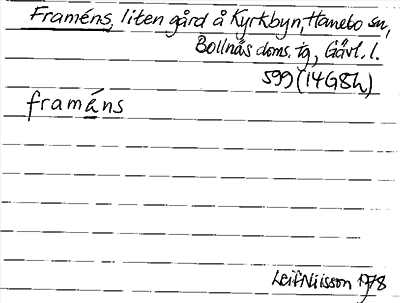 Framéns, liten gård å Kyrkbyn, Hanebo sn,
Bollnäs doms. tg, Gävl. l.
599 (14G8h)
framáns
Leif Nilsson 1978